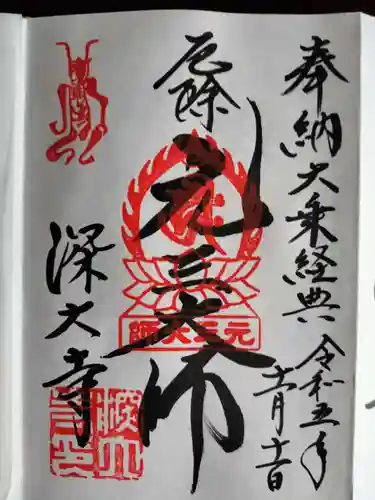 奉納大乗経典
令和五年
十一月十一日
厄除
元三大師
元三大師
深大寺